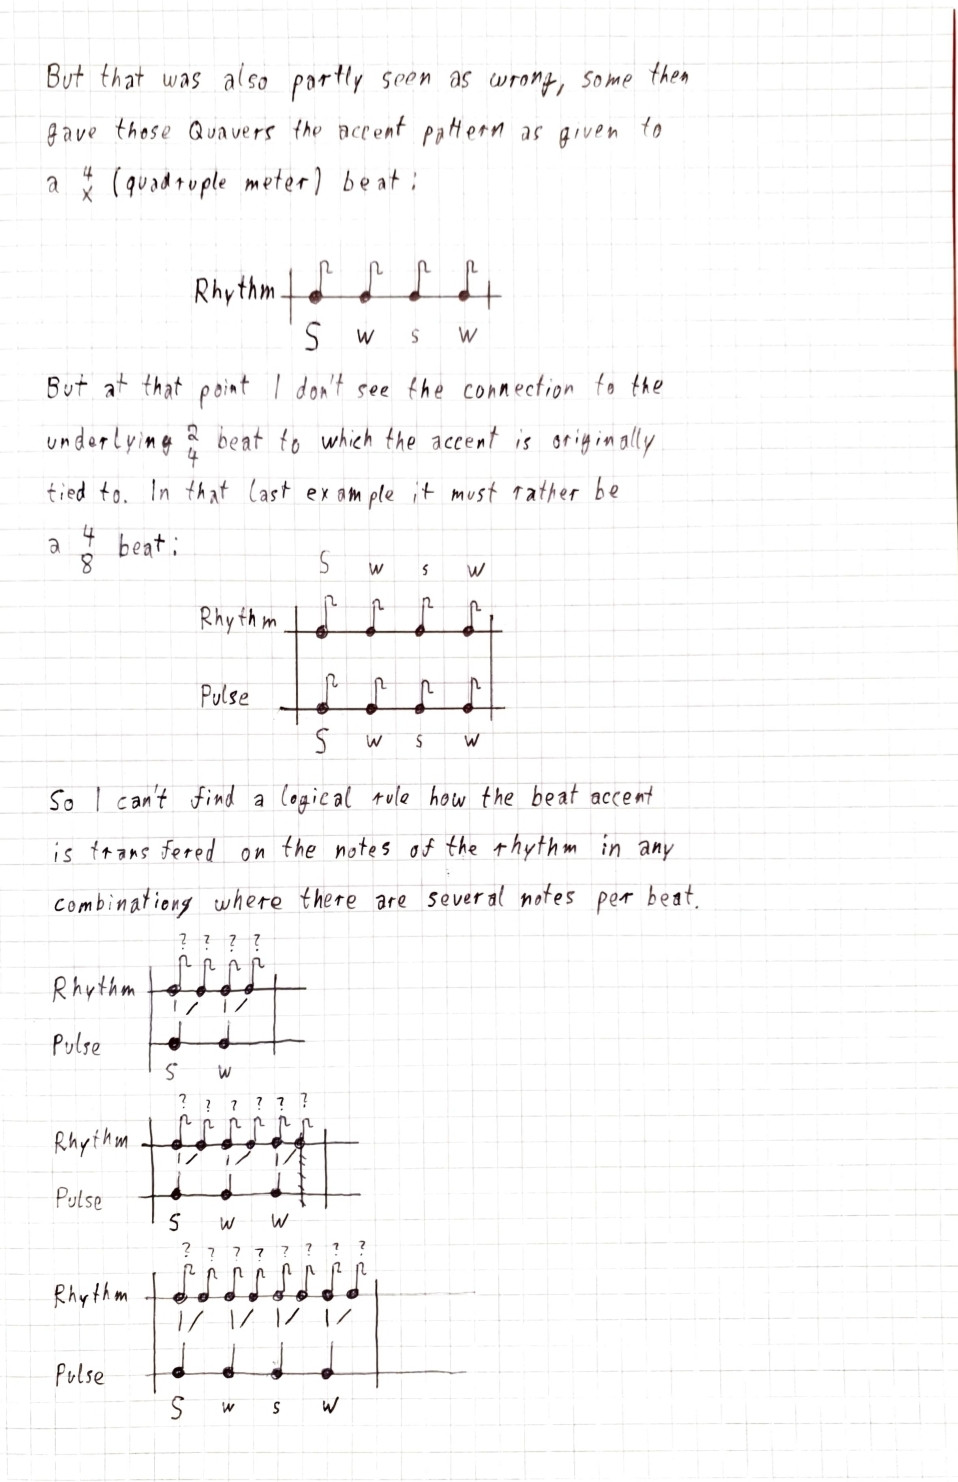 But that was also partly seen as wrong, some then
gave those Quavers the accent pattern as given to
a 4/x (quadruple meter) beat:
Rhythm
S w s w
But at that point I don't see the connection to the
underlying 2/4 beat to which the accent is originally
tied to. In that last example it must rather be
a 4/8 beat:
S w s w
Rhythm
Pulse
S w s w
So I can't find a logical rule how the beat accent
is transfered on the notes of the rhythm in any
combinations where there are several notes per beat.
? ? ? ?
Rhythm
Pulse
S w
? ? ? ? ? ?
Rhythm
Pulse
S w w
? ? ? ? ? ? ? ?
Rhythm
Pulse
S w s w